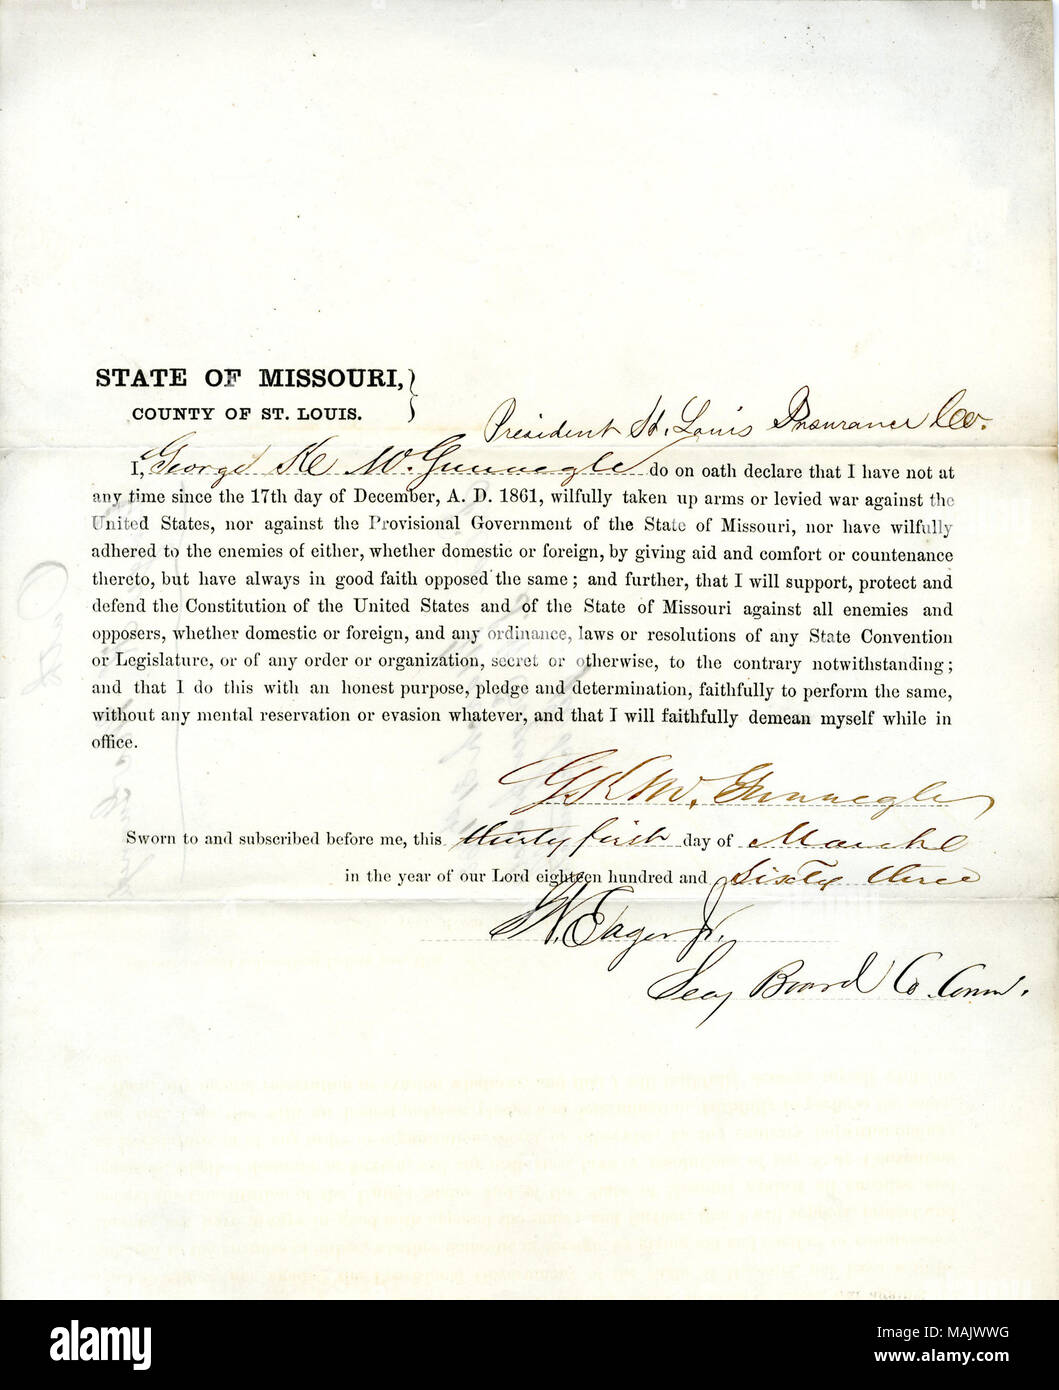 STATE OF MISSOURI,
COUNTY OF ST. LOUIS.
President St. Louis Insurance Co.
I, George K McGunnegle do on oath declare that I have not at
any time since the 17th day of December, A. D. 1861, wilfully taken up arms or levied war against the
United States, nor against the Provisional Government of the State of Missouri, nor have wilfully
adhered to the enemies of either, whether domestic or foreign, by giving aid and comfort or countenance
thereto, but have always in good faith opposed the same; and further, that I will support, protect and
defend the Constitution of the United States and of the State of Missouri against all enemies and
opposers, whether domestic or foreign, and any ordinance, laws or resolutions of any State Convention
or Legislature, or of any order or organization, secret or otherwise, to the contrary notwithstanding;
and that I do this with an honest purpose, pledge and determination, faithfully to perform the same,
without any mental reservation or evasion whatever, and that I will faithfully demean myself while in
office.
G K McGunnegle
Sworn to and subscribed before me, this thirty first day of March
in the year of our Lord eighteen hundred and Sixty three
W. Eager Jr.
Secy Board Co Comr.
alamy
Image ID: MAJWWG
www.alamy.com